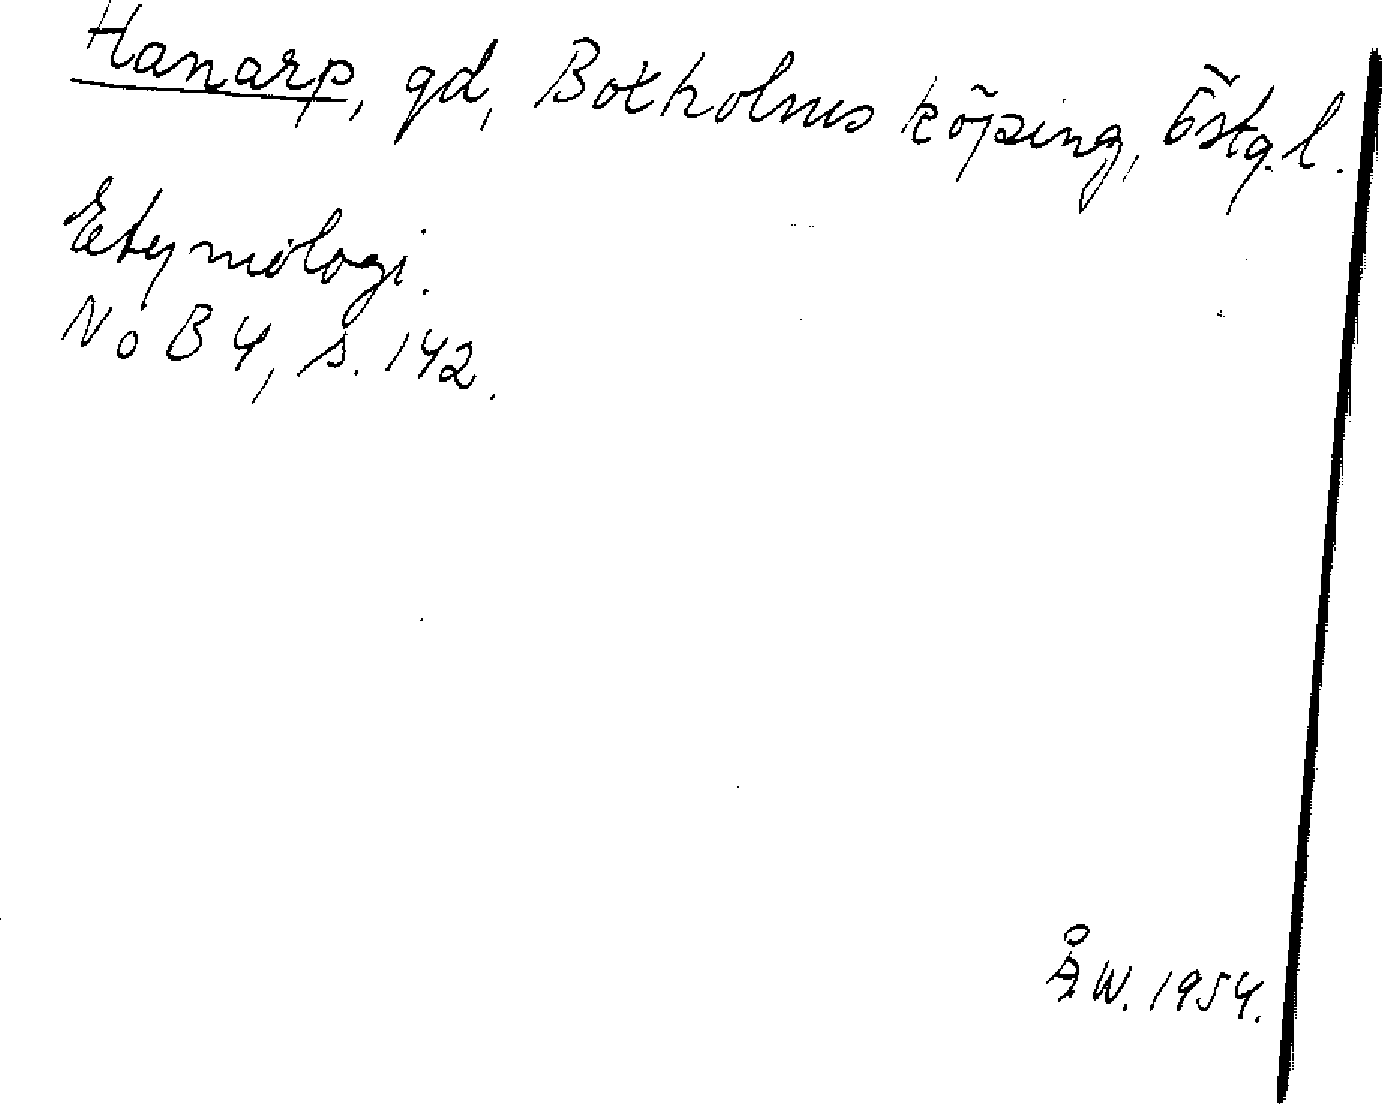 Hanarp, gd, Botholms köping, Östg.l.
Etymologi.
NoB 4, s. 142.
ÅW. 1954.